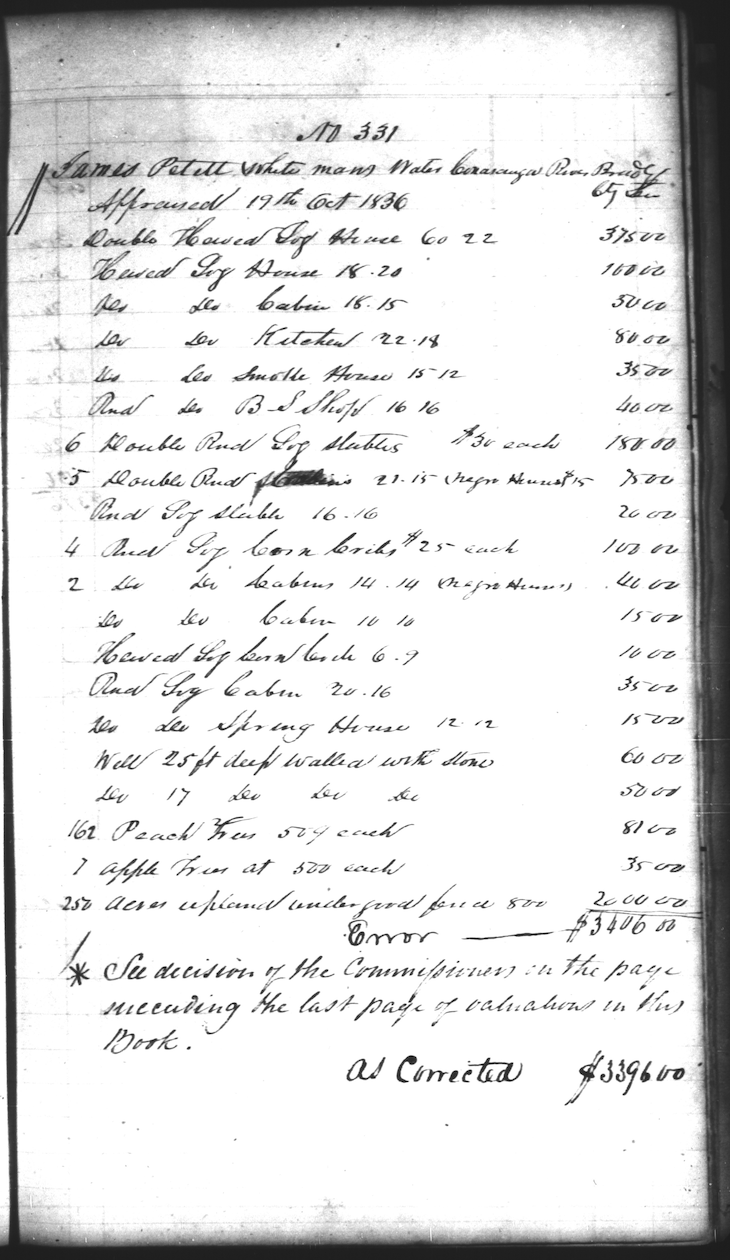 No 331
James Petitt White mans Water Conasauga River Bradly
Appraised 19th Oct 1836 Cty Ten
Double Hewed Log House 60 22 375 00
Hewed Log House 18.20 100 00
Do Do Cabin 18.15 50 00
Do Do Kitchen 22.18 80 00
Do Do Smoke House 15 12 35 00
Rnd Do B S Shop 16 16 40 00
6 Double Rnd Log Stables $30 each 180 00
5 Double Rnd 22.15 (Negro Houses $15 75 00
Rnd Log Stable 16.16 20 00
4 Rnd Log Corn Cribs $25 each 100 00
2 Do Do Cabins 14.14 (Negro Houses) 40 00
Do Do Cabin 10 10 15 00
Hewed Log Corn Crib 6.9 10 00
Rnd Log Cabin 20.16 35 00
Do Do Spring House 12.12 15 00
Well 25 ft deep walled with stone 60 00
Do 17 Do Do Do 50 00
162 Peach Trees 50¢ each 81 00
7 Apple Trees at 500 each 35 00
250 Acres upland under good fence 800 2000 00
Error — $3406 00
* See decision of the Commissioners on the page
succeeding the last page of valuations in this
Book.
As Corrected $3396 00